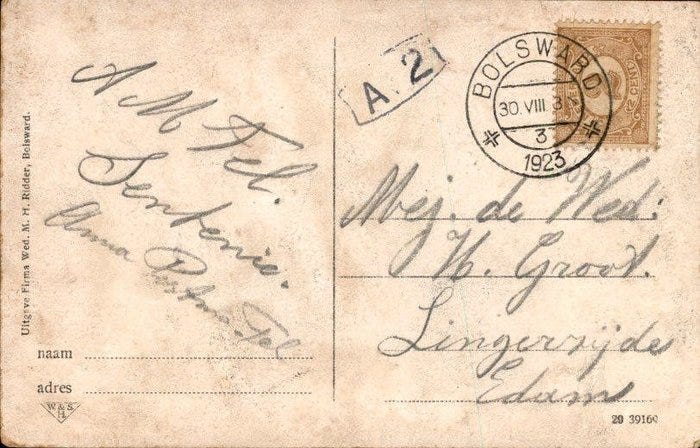 Uitgave Firma Wed. M. H. Ridder, Bolsward.
A M Tel.
Sentenie.
Anna Tel
naam
adres
W. & S.
H.
A. 2
BOLSWARD
30.VIII 3
3
1923
CENT
Mej. de Wed:
K. Groot.
Lingerzijde
Edam
29 39160